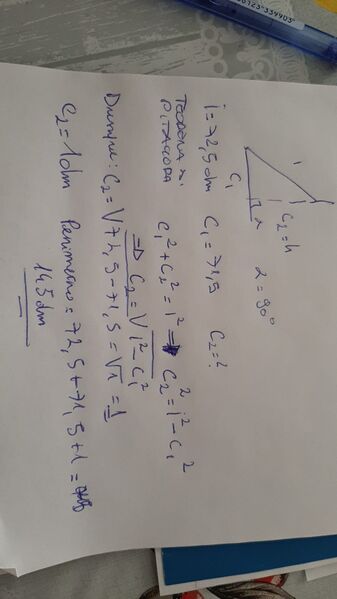 i
C₁
C₂=h
α
α=90°
i=72,5dm C₁=71,5 C₂=?
TEOREMA DI PITAGORA
C₁²+C₂²=i² ⇒ C₂²=i²-C₁²
⇒ C₂=√i²-C₁²
C₂=√72,5-71,5=√1=1
C₂=1dm Perimetro=72,5+71,5+1=
145dm